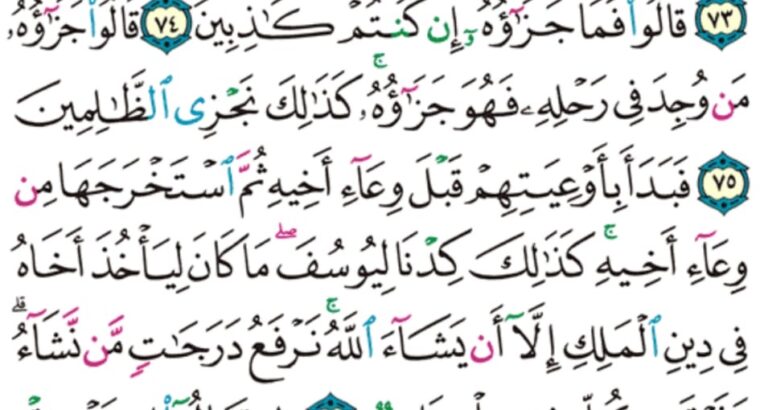 ﴿٧٣﴾ قَالُوا۟ فَمَا جَزَٰٓؤُهُۥٓ إِن كُنتُمْ كَٰذِبِينَ ﴿٧٤﴾ قَالُوا۟ جَزَٰٓؤُهُۥ
مَن وُجِدَ فِى رَحْلِهِۦ فَهُوَ جَزَٰٓؤُهُۥ ۚ كَذَٰلِكَ نَجْزِى ٱلظَّٰلِمِينَ
﴿٧٥﴾ فَبَدَأَ بِأَوْعِيَتِهِمْ قَبْلَ وِعَآءِ أَخِيهِ ثُمَّ ٱسْتَخْرَجَهَا مِن
وِعَآءِ أَخِيهِ ۚ كَذَٰلِكَ كِدْنَا لِيُوسُفَ ۖ مَا كَانَ لِيَأْخُذَ أَخَاهُ
فِى دِينِ ٱلْمَلِكِ إِلَّآ أَن يَشَآءَ ٱللَّهُ ۚ نَرْفَعُ دَرَجَٰتٍ مَّن نَّشَآءُ ۗ